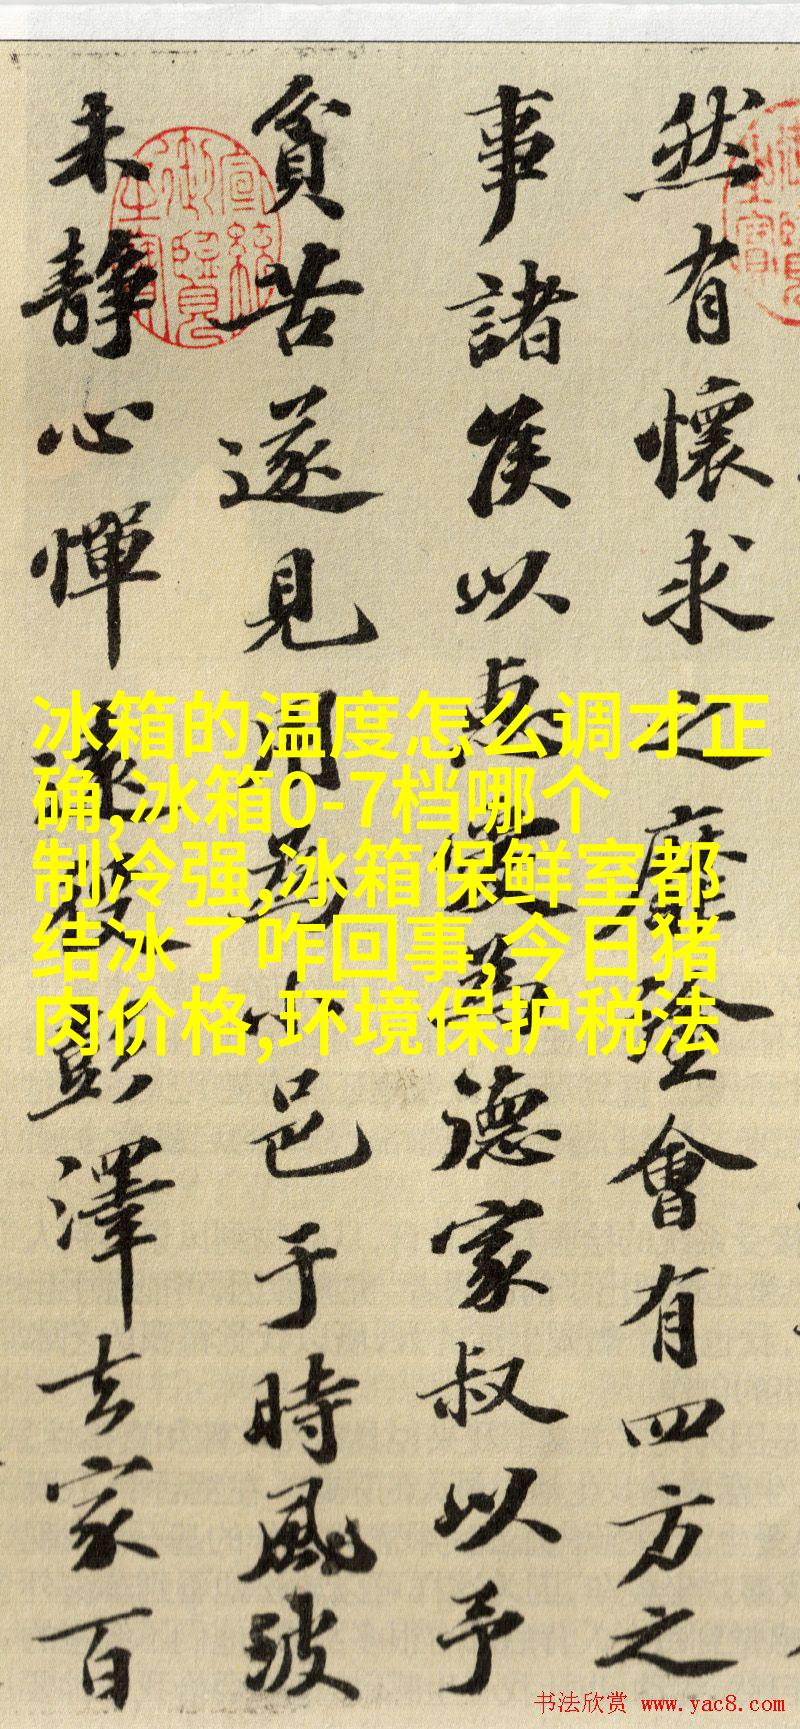 然有懷求之靡塗會有四方之
事諸侯以惠愛為德家叔以予
貧苦遂見用為小邑于時風波
未靜心憚遠役彭澤去家百
宣統
御覽
之寶
冰箱的温度怎么调才正
确,冰箱0-7档哪个
制冷强,冰箱保鲜室都
结冰了咋回事,今日猪
肉价格,环境保护税法
书法欣赏 www.yac8.com